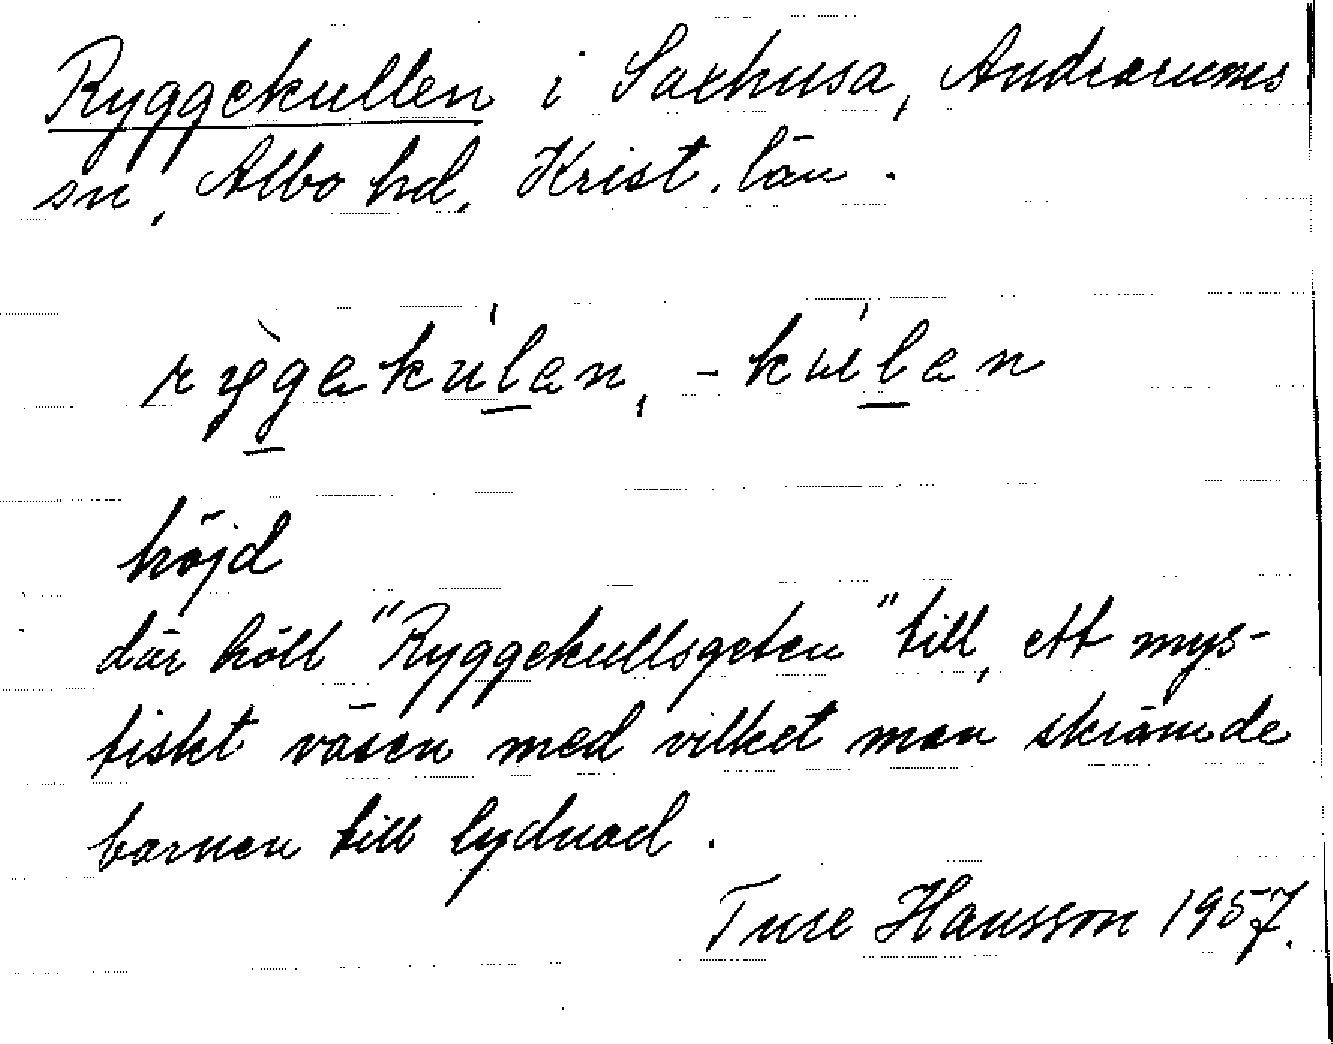 Ryggekullen i Saxhusa, Andrarums
sn, Albo hd, Krist. län.
rỳgekúlen, -kúlen
höjd
där höll "Ryggekullsgeten" till, ett mys-
tiskt väsen med vilket man skrämde
barnen till lydnad.
Ture Hansson 1957.